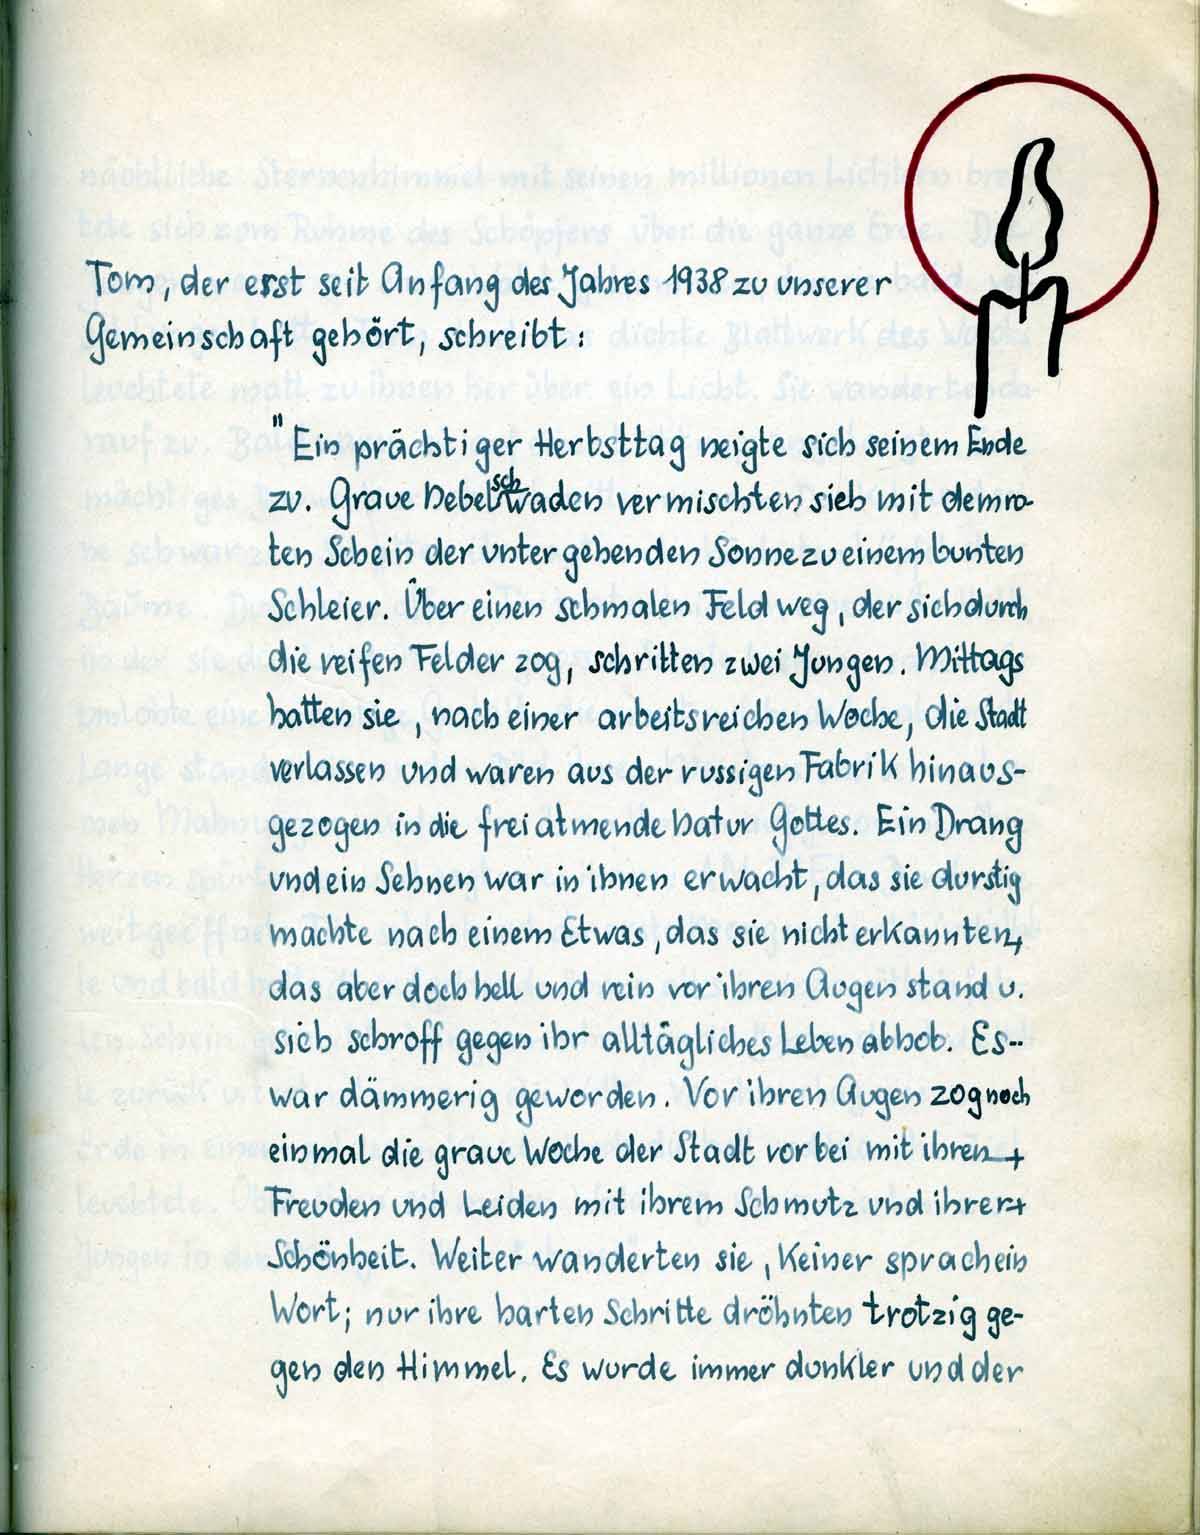 Tom, der erst seit Anfang des Jahres 1938 zu unserer
Gemeinschaft gehört, schreibt:
"Ein prächtiger Herbsttag neigte sich seinem Ende
zu. Graue Nebelschwaden vermischten sich mit dem ro-
ten Schein der untergehenden Sonne zu einem bunten
Schleier. Über einen schmalen Feldweg, der sich durch
die reifen Felder zog, schritten zwei Jungen. Mittags
hatten sie, nach einer arbeitsreichen Woche, die Stadt
verlassen und waren aus der russigen Fabrik hinaus-
gezogen in die frei atmende Natur Gottes. Ein Drang
und ein Sehnen war in ihnen erwacht, das sie durstig
machte nach einem Etwas, das sie nicht erkannten,
das aber doch hell und rein vor ihren Augen stand u.
sich schroff gegen ihr alltägliches Leben abhob. Es--
war dämmerig geworden. Vor ihren Augen zog noch
einmal die graue Woche der Stadt vorbei mit ihren
Freuden und Leiden mit ihrem Schmutz und ihrer
Schönheit. Weiter wanderten sie, keiner sprach ein
Wort; nur ihre harten Schritte dröhnten trotzig ge-
gen den Himmel. Es wurde immer dunkler und der